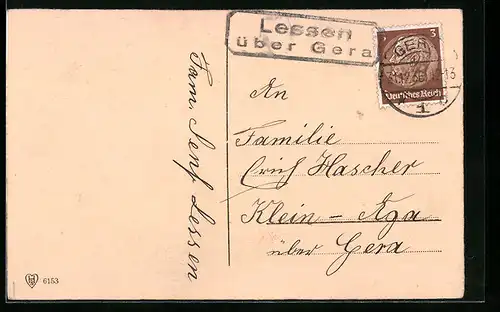 Lessen
über Gera
3
Deutsches Reich
GERA
1
Fam. Senf Lessen
An
Familie
Erich Hascher
Klein-Aga
über Gera
6153